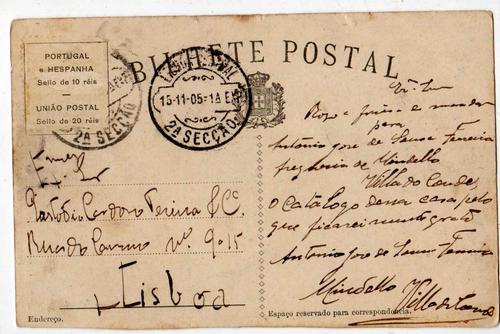 BILHETE POSTAL
PORTUGAL
e HESPANHA
Sello de 10 réis
UNIÃO POSTAL
Sello de 20 réis
2ª SECÇÃO
LISBOA CENTRAL
15-11-05
2ª SECÇÃO
Custodio Cardoso Pereira & Cª
Rua do Carmo nº 9-15
Lisboa
Endereço.
Rogo o favor e mandar
para
Antonio José de Sousa Ferreira
freguezia de Mindello
Villa do Conde
o Catalogo da sua casa pelo
que ficarei muito grato
Antonio José de Sousa Ferreira
Mindello Villa do Conde
Espaço reservado para correspondencia.